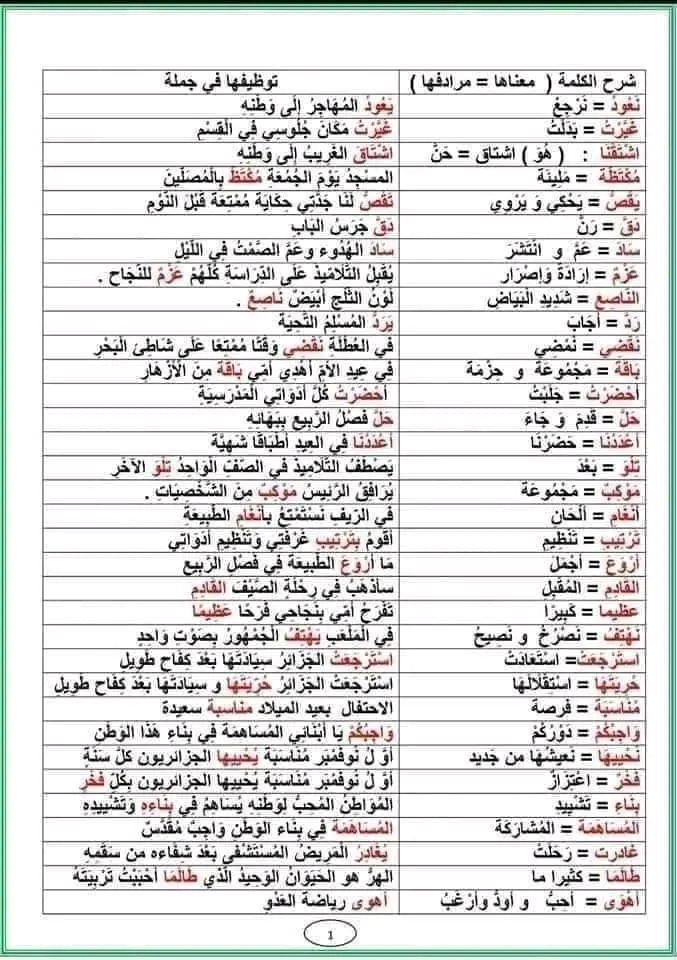 شرح الكلمة ( معناها = مرادفها ) توظيفها في جملة
نَعُودُ = نَرْجِعُ يَعُودُ المُهَاجِرُ إلَى وَطَنِهِ
غَيَّرْتُ = بَدَلْتُ غَيَّرْتُ مَكَانَ جُلُوسِي فِي الْقِسْمِ
اشْتَقْنَا : ( هُوَ ) اشتاق = حَنَّ اشْتَاقَ الغَرِيبُ إلَى وَطَنِهِ
مُكْتَظَّة = مَلِيئَة المسْجِدُ يَوْمَ الجُمْعَةِ مُكْتَظٌّ بِالْمُصَلِّينَ
يَقُصُّ = يَحْكِي وَ يَرْوِي تَقُصُّ لَنَا جَدَّتِي حِكَايَة مُمْتِعَة قَبْلَ النَّوْمِ
دَقَّ = رَنَّ دَقَّ جَرَسُ البَابِ
سَادَ = عَمَّ و انْتَشَرَ سَادَ الهُدُوء وعَمَّ الصَّمْتُ فِي اللَّيْلِ
عَزْمٌ = إرَادَةٌ وَإصْرَار يُقْبِلُ التَّلَامِيذ عَلَى الدِّرَاسَةِ كُلُّهُمْ عَزْمٌ للنّجَاح .
النَّاصِع = شَدِيد البَيَاض لَوْنُ الثَّلْجِ أبْيَضٌ نَاصِعٌ .
رَدَّ = أجَابَ يَرَدُّ المُسْلِمُ التَّحِيَّة
نَقْضِي = نُمْضِي في العُطْلَةِ نَقْضِي وَقْتًا مُمْتِعًا عَلَى شَاطِئِ الْبَحْرِ
بَاقَة = مَجْمُوعَة و حِزْمَة فِي عِيدِ الأمِّ أهْدِي أمِّي بَاقَة مِنَ الأزْهَارِ
أحْضَرْتُ = جَلَبْتُ أحْضَرْتُ كُلَّ أدَوَاتِي الْمَدْرَسِيَّةِ
حَلَّ = قَدِمَ وَ جَاءَ حَلَّ فَصْلُ الرَّبِيعِ بِبَهَائِهِ
أعْدَدْنَا = حَضَّرْنَا أعْدَدْنَا فِي العِيدِ أطْبَاقًا شَهِيَّة
تِلْوَ = بَعْدَ يَصْطَفُّ التَّلَامِيذ في الصَّفِّ الْوَاحِدُ تِلْوَ الآخَرِ
مَوْكِبٌ = مَجْمُوعَة يُرَافِقُ الرَّئِيسُ مَوْكِبٌ مِنَ الشَّخْصِيَاتِ .
أنْغَام = ألْحَان في الرّيفِ نَسْتَمْتِعُ بأنْغَامِ الطَّبِيعَةِ
تَرْتِيب = تَنْظِيم أقُومُ بِتَرْتِيبِ غُرْفَتِي وَتَنْظِيم أدَوَاتِي
أرْوَع = أجْمَل مَا أرْوَعَ الطَّبِيعَة فِي فَصْلِ الرَّبِيع
القَادِم = المُقْبِل سأذهَبُ فِي رِحْلَةِ الصَّيْف القَادِم
عظِيما = كَبِيرًا تَفْرَحُ أمِّي بِنَجَاحِي فَرَحًا عَظِيمًا
نَهْتِفُ = نَصْرُخُ و نَصِيحُ فِي المَلْعَبِ يَهْتِفُ الْجُمْهُورُ بِصَوْتٍ وَاحِدٍ
اسْتَرْجَعَتْ= اسْتَعَادَتْ اسْتَرْجَعَتْ الجَزَائِرُ سِيَادَتَهَا بَعْدَ كِفَاحٍ طَوِيلٍ
حُرِيَتَهَا = اسْتِقْلَالَهَا اسْتَرْجَعَتْ الجَزَائِرُ حُرِيَتَهَا و سِيَادَتَهَا بَعْدَ كِفَاحٍ طَوِيلٍ
مُنَاسَبَة = فرصة الاحتفال بعيد الميلاد مناسبة سعيدة
وَاجِبُكُمْ = دَوْرُكُمْ وَاجِبُكُمْ يَا أبْنَائِي المُسَاهَمَة فِي بِنَاءِ هَذَا الوَطَنِ
نُحْيِيهَا = نَعِيشُهَا من جَدِيد أوّ لُ نُوفَمْبَر مُنَاسَبَة يُحْيِيها الجزائريون كلَّ سَنَةٍ
فَخْرٌ = اعْتِزَازٌ أوّ لُ نُوفَمْبَر مُنَاسَبَة يُحْيِيها الجزائريون بِكُلِّ فَخْرٍ
بِنَاء = تَشْيِيد المُوَاطِنُ المُحِبُّ لِوَطَنِهِ يُسَاهِمُ فِي بِنَاءِه وَتَشْيِيدِهِ
المُسَاهَمَة = المُشَارَكَة المُسَاهَمَة فِي بِنَاءِ الوَطَنِ وَاجِبٌ مُقَدَّسٌ
غادرت = رَحَلَتْ يُغَادِرُ الْمَرِيضُ المُسْتَشْفَى بَعْدَ شِفَاءِه من سَقَمِهِ
طَالَمَا = كثيرا ما الهرُّ هو الحَيَوَانُ الوَحِيدُ الَّذِي طَالَمَا أحْبَبْتُ تَرْبِيَتَهُ
أهْوَى = أحِبُّ و أودُّ وأرْغَبُ أهوى رياضة العَدْوِ
1